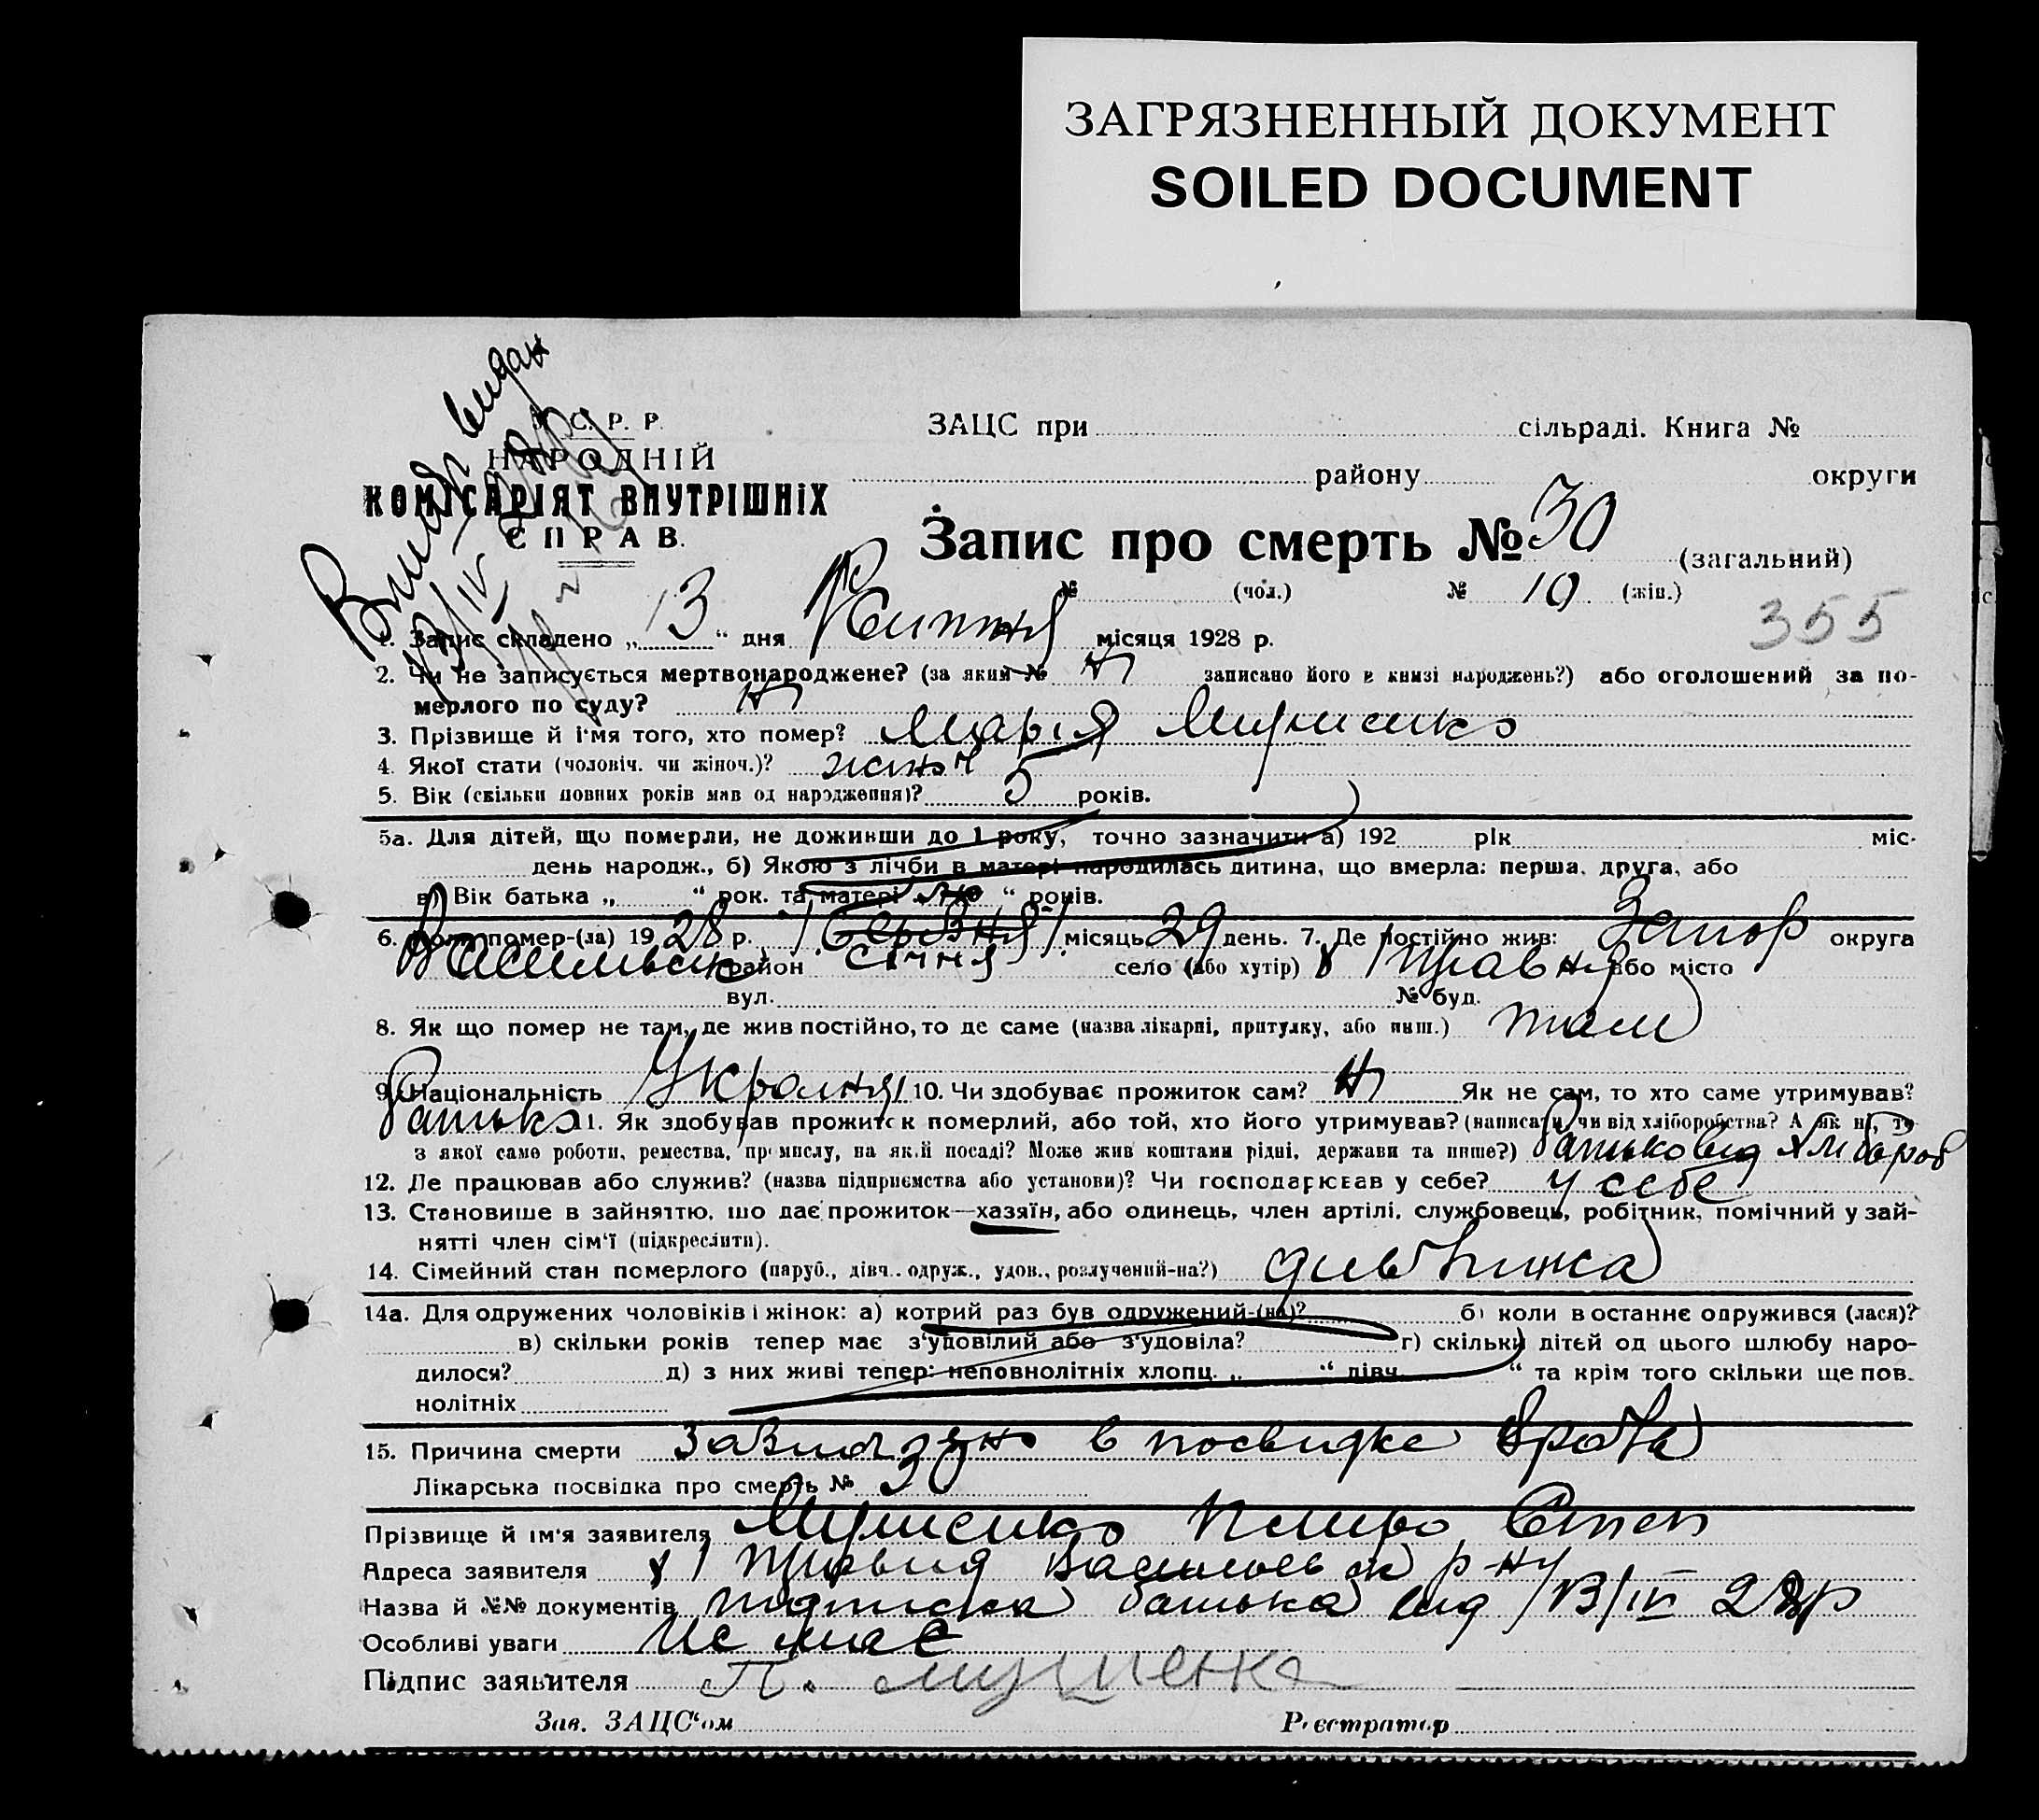 ЗАГРЯЗНЕННЫЙ ДОКУМЕНТ
SOILED DOCUMENT
видан
С. Р. Р.
НАРОДНІЙ
КОМІСАРІЯТ ВНУТРІШНІХ
СПРАВ.
ЗАЦС при сільраді. Книга №
району округи
Запис про смерть № 30 (загальний)
№ (чол.) № 10 (жін.)
355
1. Запис складено „13“ дня Квітня місяця 1928 р.
2. Чи не записується мертвонароджене? (за яким № ні записано його в книзі народжень?) або оголошений за по-
мерлого по суду? ні
3. Прізвище й ім'я того, хто помер? Марія
4. Якої стати (чоловіч. чи жіноч.)? жіноч
5. Вік (скільки повних років мав од народження)? 5 років.
5а. Для дітей, що померли, не доживши до 1 року, точно зазначити а) 192 рік міс.
день народж., б) Якою з лічби в матері народилась дитина, що вмерла: перша, друга, або
в) Вік батька „ “ рок. та матері “ років.
6. Коли помер-(ла) 1928 р. місяць 29 день. 7. Де постійно жив: Запор округа
район січня село (або хутір) або місто
вул. № буд.
8. Як що помер не там, де жив постійно, то де саме (назва лікарні, притулку, або инш.) там
9. Національність 10. Чи здобуває прожиток сам? ні Як не сам, то хто саме утримував?
батько 11. Як здобував прожиток померлий, або той, хто його утримував? (написати, чи від хліборобства? А як ні, то
з якої саме роботи, ремества, промислу, на якій посаді? Може жив коштами рідні, держави та инше?) батько від хлібороб
12. Де працював або служив? (назва підприємства або установи)? Чи господарював у себе? у себе
13. Становище в зайняттю, що дає прожиток—хазяїн, або одинець, член артілі, службовець, робітник, помічний у зай-
нятті член сім'ї (підкреслити).
14. Сімейний стан померлого (паруб., дівч., одруж., удов., розлучений-на?) дивчинка
14а. Для одружених чоловіків і жінок: а) котрий раз був одружений-(на)? б) коли в останнє одружився (лася)?
в) скільки років тепер має з'удовілий або з'удовіла? г) скільки дітей од цього шлюбу наро-
дилося? д) з них живі тепер: неповнолітніх хлопц. „ “ дівч. “ та крім того скільки ще пов.
нолітніх
15. Причина смерти в посвидке врача
Лікарська посвідка про смерть № 30
Прізвище й ім'я заявителя Петро Степ
Адреса заявителя р-ну
Назва й №№ документів підписка батька від 13/IV 28р
Особливі уваги Не має
Підпис заявителя П.
Зав. ЗАЦС'ом Реєстратор